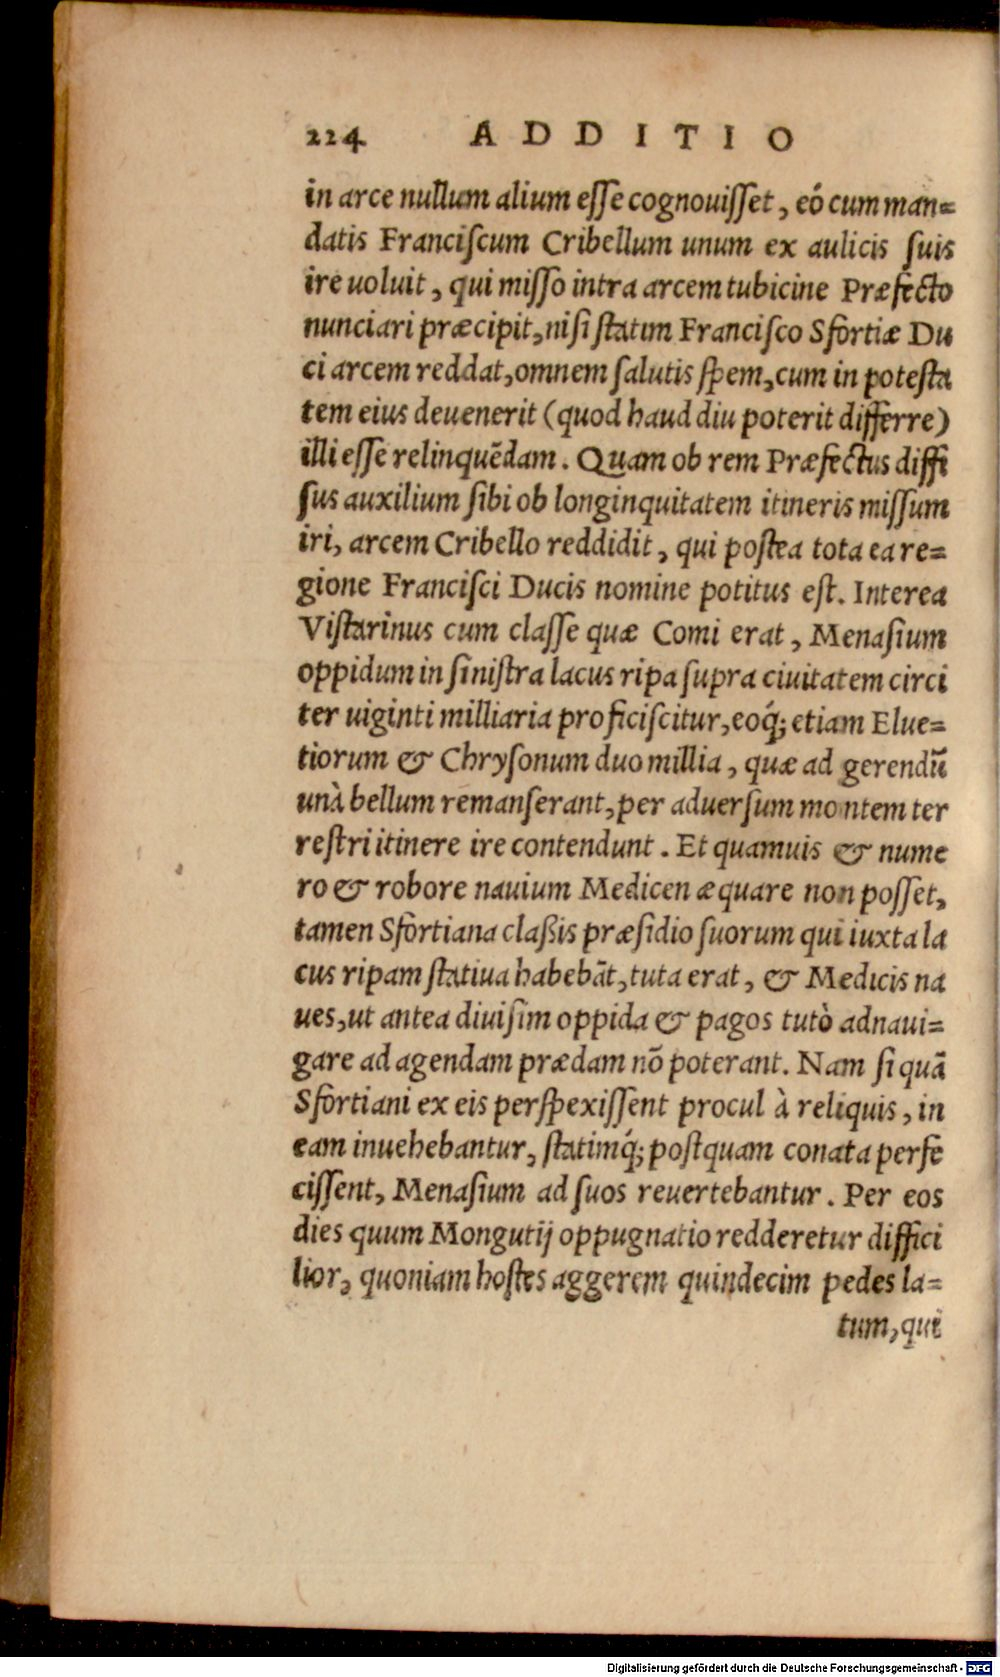 224 ADDITIO
in arce nullum alium eſſe cognouiſſet, eó cum man=
datis Franciſcum Cribellum unum ex aulicis ſuis
ire uoluit, qui miſſo intra arcem tubicine Præfecto
nunciari præcipit, niſi ſtatim Franciſco Sfortiæ Du
ci arcem reddat, omnem ſalutis ſpem, cum in poteſta
tem eius deuenerit (quod haud diu poterit differre)
illi eſſe relinquēdam. Quam ob rem Præfectus diffi
ſus auxilium ſibi ob longinquitatem itineris miſſum
iri, arcem Cribello reddidit, qui poſtea tota ea re=
gione Franciſci Ducis nomine potitus eſt. Interea
Viſtarinus cum claſſe quæ Comi erat, Menaſium
oppidum in ſiniſtra lacus ripa ſupra ciuitatem circi
ter uiginti milliaria proficiſcitur, eoq́; etiam Elue=
tiorum & Chryſonum duo millia, quæ ad gerendū
unà bellum remanſerant, per aduerſum montem ter
reſtri itinere ire contendunt. Et quamuis & nume
ro & robore nauium Medicen æquare non poſſet,
tamen Sfortiana claßis præſidio ſuorum qui iuxta la
cus ripam ſtatiua habebāt, tuta erat, & Medicis na
ues, ut antea diuiſim oppida & pagos tutò adnaui=
gare ad agendam prædam nō poterant. Nam ſi quā
Sfortiani ex eis perſpexiſſent procul à reliquis, in
eam inuehebantur, ſtatimq́; poſtquam conata perfe
ciſſent, Menaſium ad ſuos reuertebantur. Per eos
dies quum Mongutij oppugnatio redderetur diffici
lior, quoniam hoſtes aggerem quindecim pedes la=
tum, qui
Digitalisierung gefördert durch die Deutsche Forschungsgemeinschaft - DFG